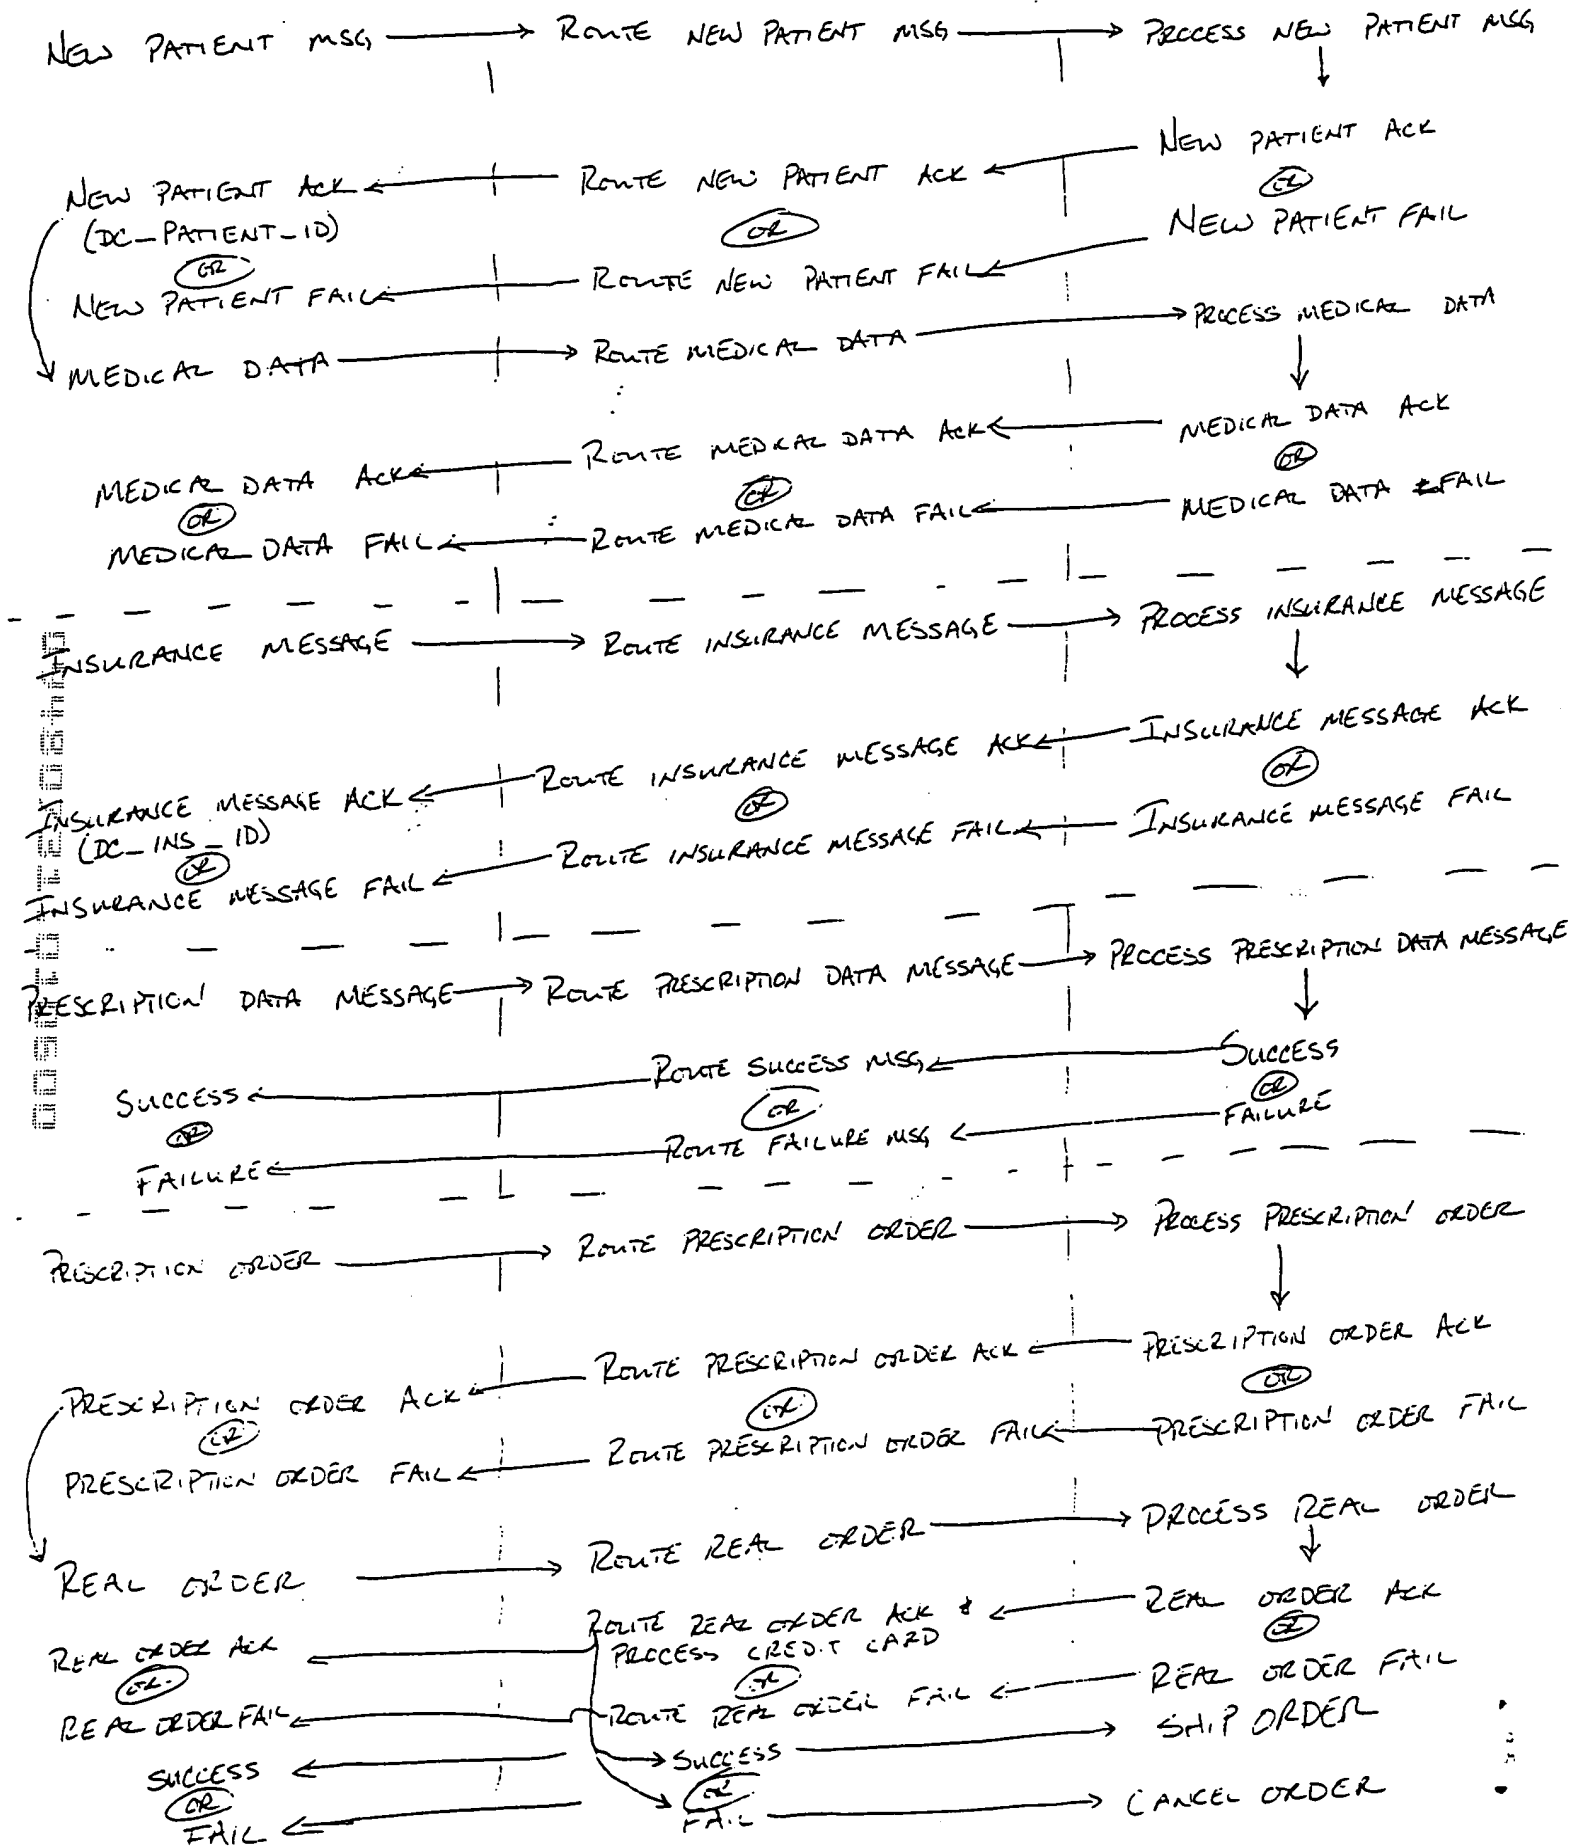 NEW PATIENT MSG → ROUTE NEW PATIENT MSG → PROCESS NEW PATIENT MSG
NEW PATIENT ACK
NEW PATIENT ACK ROUTE NEW PATIENT ACK
OR
(DC_PATIENT_ID) OR NEW PATIENT FAIL
OR
NEW PATIENT FAIL ROUTE NEW PATIENT FAIL
MEDICAL DATA ROUTE MEDICAL DATA PROCESS MEDICAL DATA
MEDICAL DATA ACK ROUTE MEDICAL DATA ACK MEDICAL DATA ACK
OR OR OR
MEDICAL DATA FAIL ROUTE MEDICAL DATA FAIL MEDICAL DATA FAIL
INSURANCE MESSAGE ROUTE INSURANCE MESSAGE PROCESS INSURANCE MESSAGE
INSURANCE MESSAGE ACK ROUTE INSURANCE MESSAGE ACK INSURANCE MESSAGE ACK
(DC_INS_ID)
OR OR OR
INSURANCE MESSAGE FAIL ROUTE INSURANCE MESSAGE FAIL INSURANCE MESSAGE FAIL
PRESCRIPTION DATA MESSAGE ROUTE PRESCRIPTION DATA MESSAGE PROCESS PRESCRIPTION DATA MESSAGE
SUCCESS ROUTE SUCCESS MSG SUCCESS
OR OR OR
FAILURE ROUTE FAILURE MSG FAILURE
PRESCRIPTION ORDER ROUTE PRESCRIPTION ORDER PROCESS PRESCRIPTION ORDER
PRESCRIPTION ORDER ACK ROUTE PRESCRIPTION ORDER ACK PRESCRIPTION ORDER ACK
OR OR OR
PRESCRIPTION ORDER FAIL ROUTE PRESCRIPTION ORDER FAIL PRESCRIPTION ORDER FAIL
REAL ORDER ROUTE REAL ORDER PROCESS REAL ORDER
REAL ORDER ACK ROUTE REAL ORDER ACK & REAL ORDER ACK
PROCESS CREDIT CARD
OR OR OR
REAL ORDER FAIL ROUTE REAL ORDER FAIL REAL ORDER FAIL
SUCCESS SUCCESS SHIP ORDER
OR OR
FAIL FAIL CANCEL ORDER